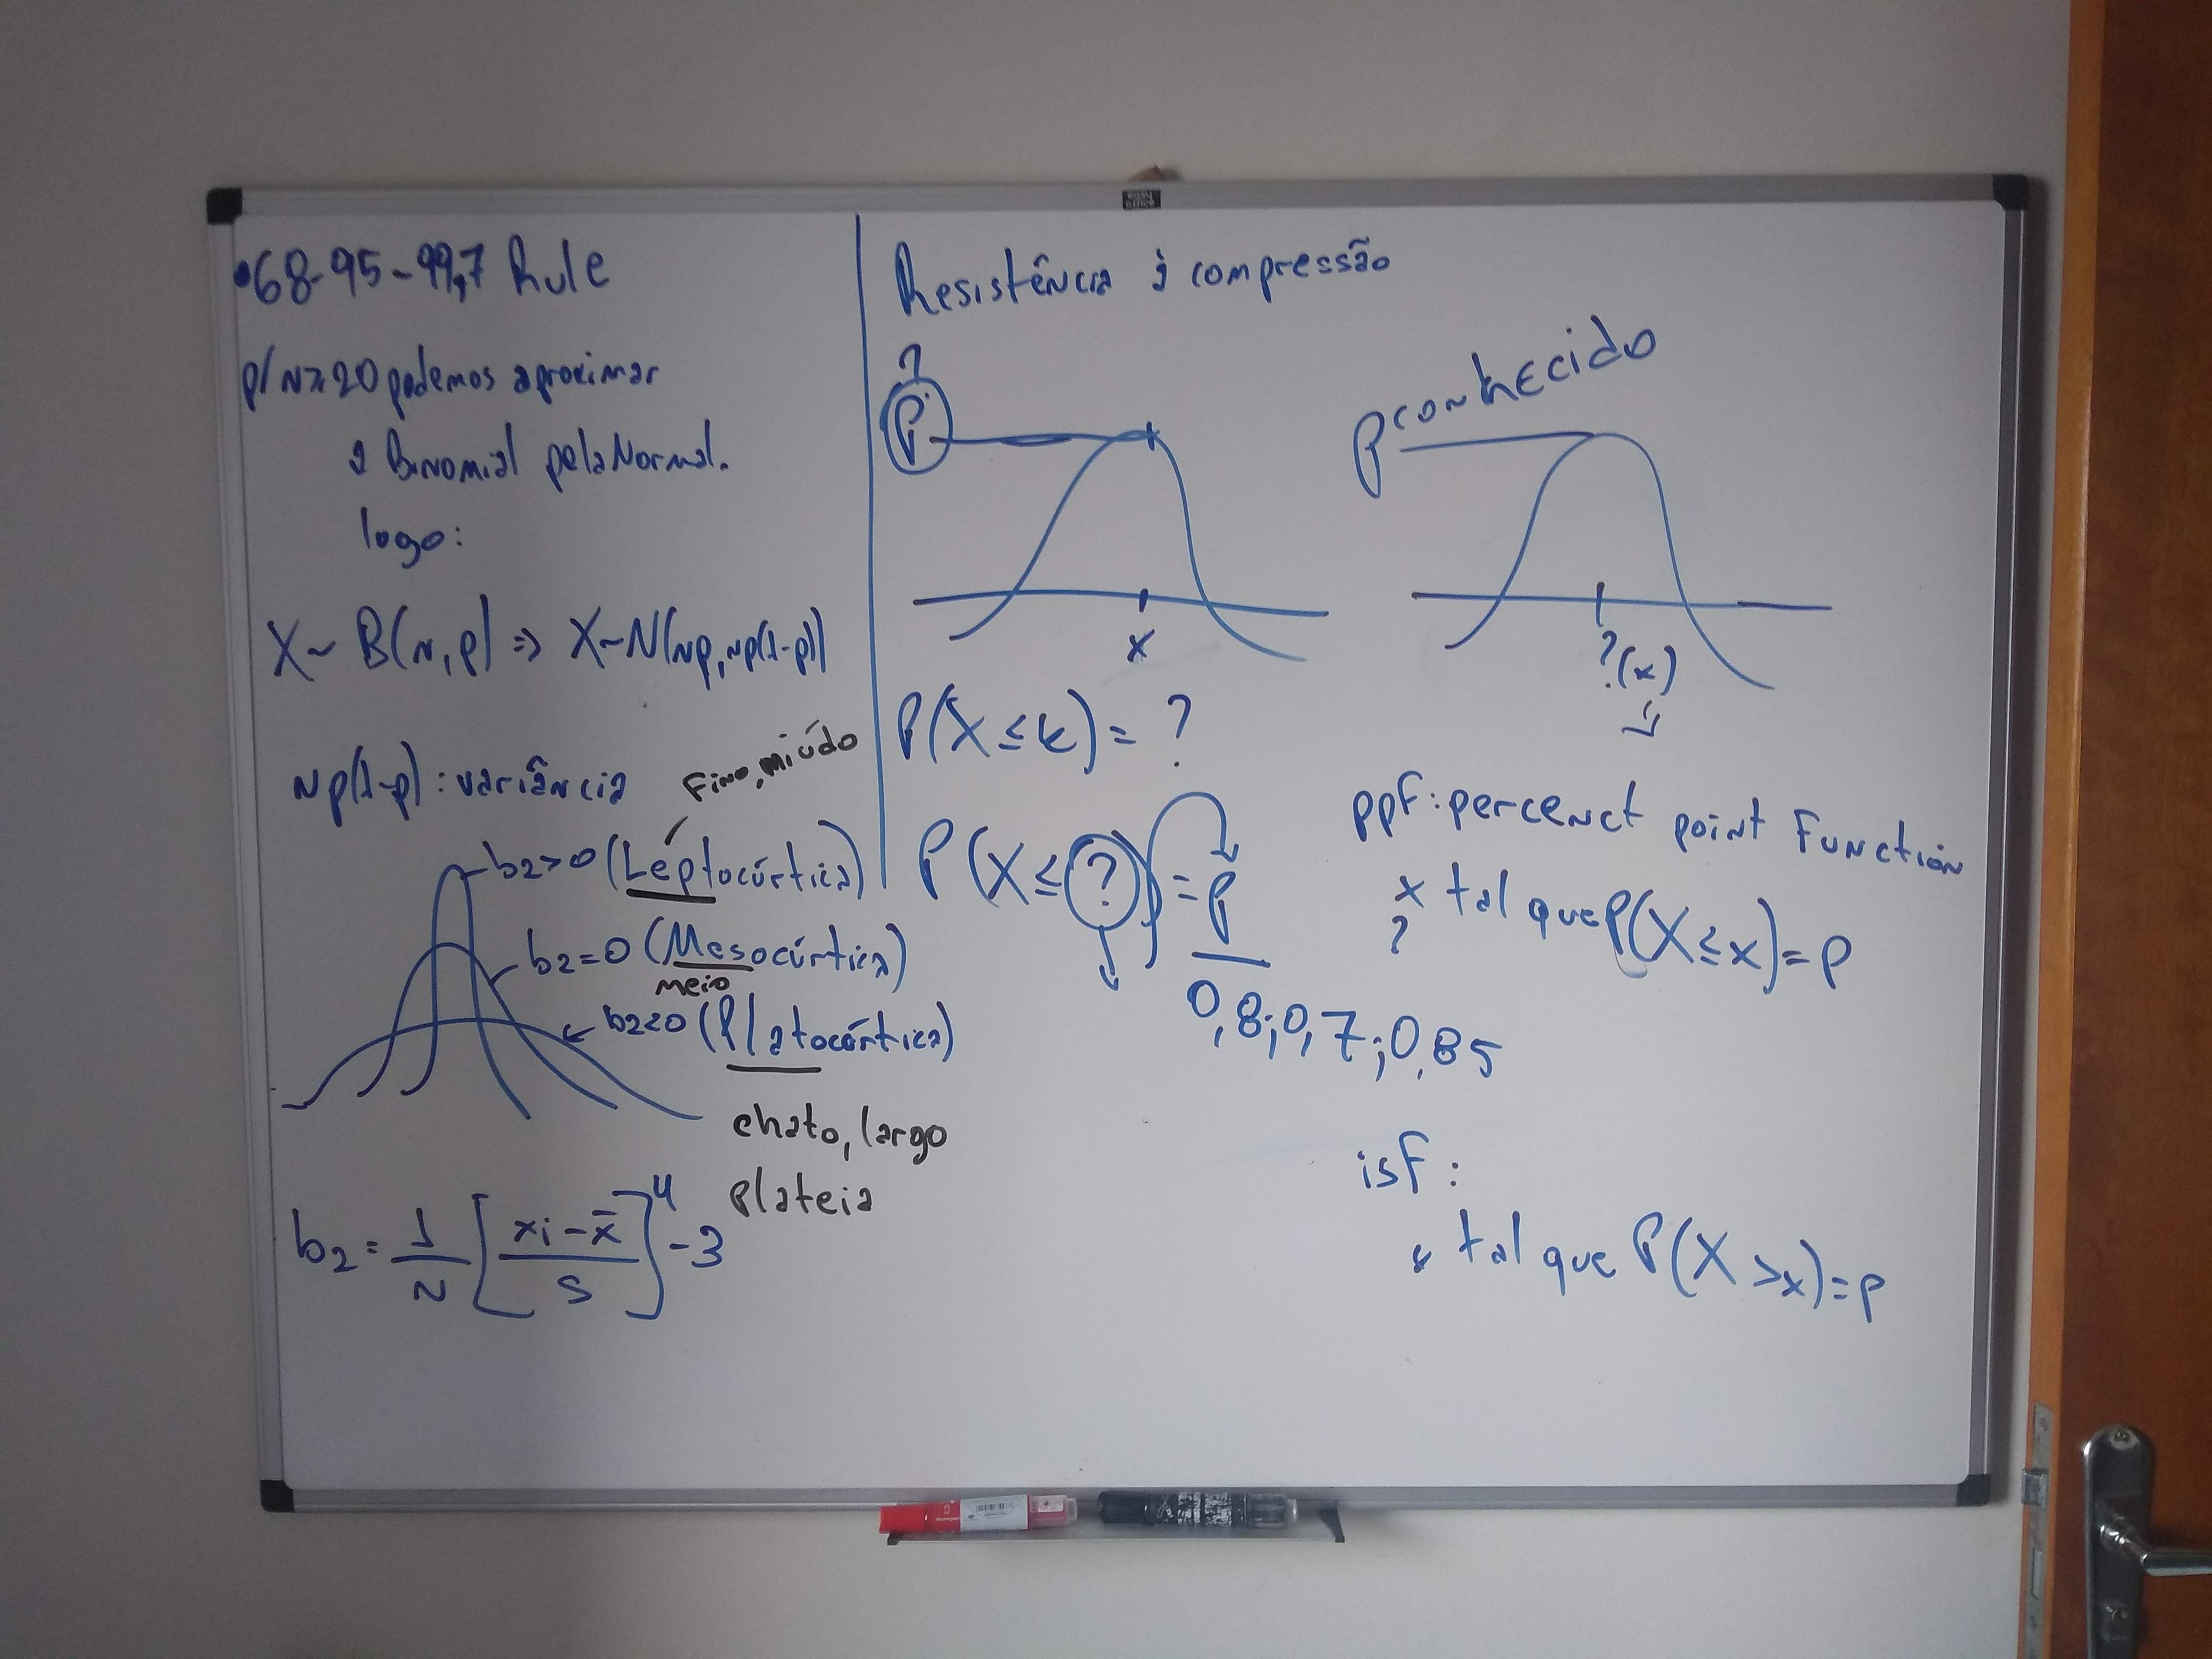 •68-95-99,7 Rule
p/ N≥20 podemos aproximar
a Binomial pela Normal.
logo:
X~ B(n,p) => X~N(np, np(1-p))
Np(1-p): variância
Fino, miúdo
b2>0 (Leptocúrtica)
b2=0 (Mesocúrtica)
meio
b2<0 (Platocúrtica)
chato, largo
plateia
b2 = 1/N [xi - x̄ / s]^4 - 3
Resistência à compressão
?
P
x
P(X ≤ k) = ?
P(X ≤ ?) = P
0,8; 0,7; 0,85
P conhecido
?(x)
ppf: percenct point Function
x tal que P(X ≤ x) = p
?
isf:
x tal que P(X > x) = p